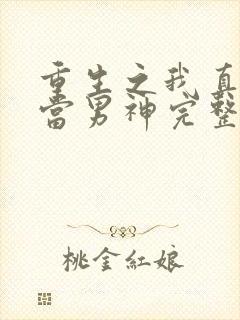 重生之我真
当男神完整
桃金红娘